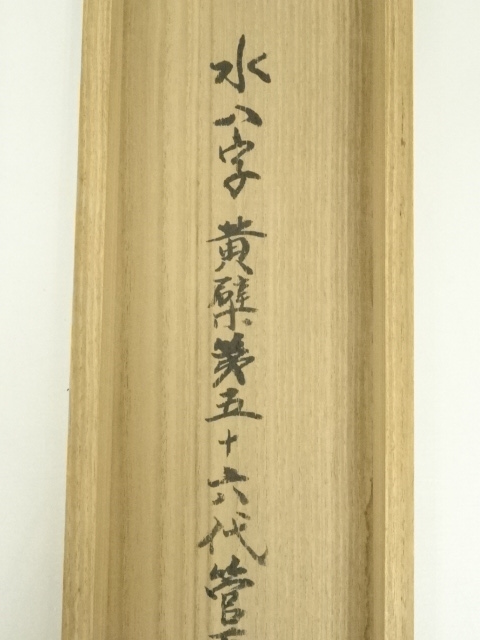 水八字黄檗第五十六代管